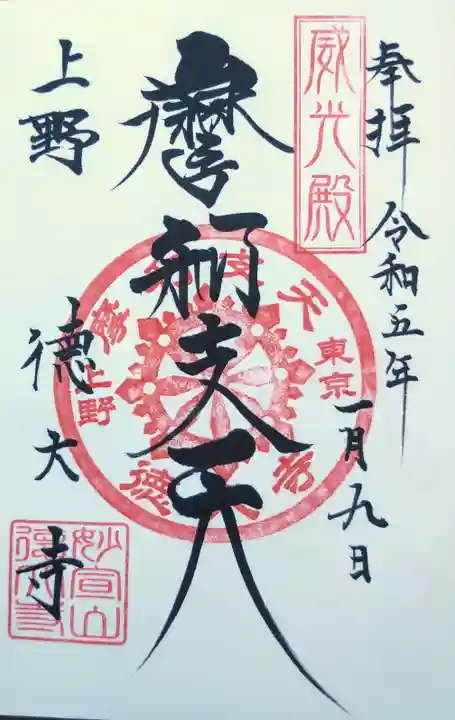 奉拝 令和五年
一月九日
威光殿
摩利支天
上野
徳大寺
東京
上野
妙宣山
徳大寺